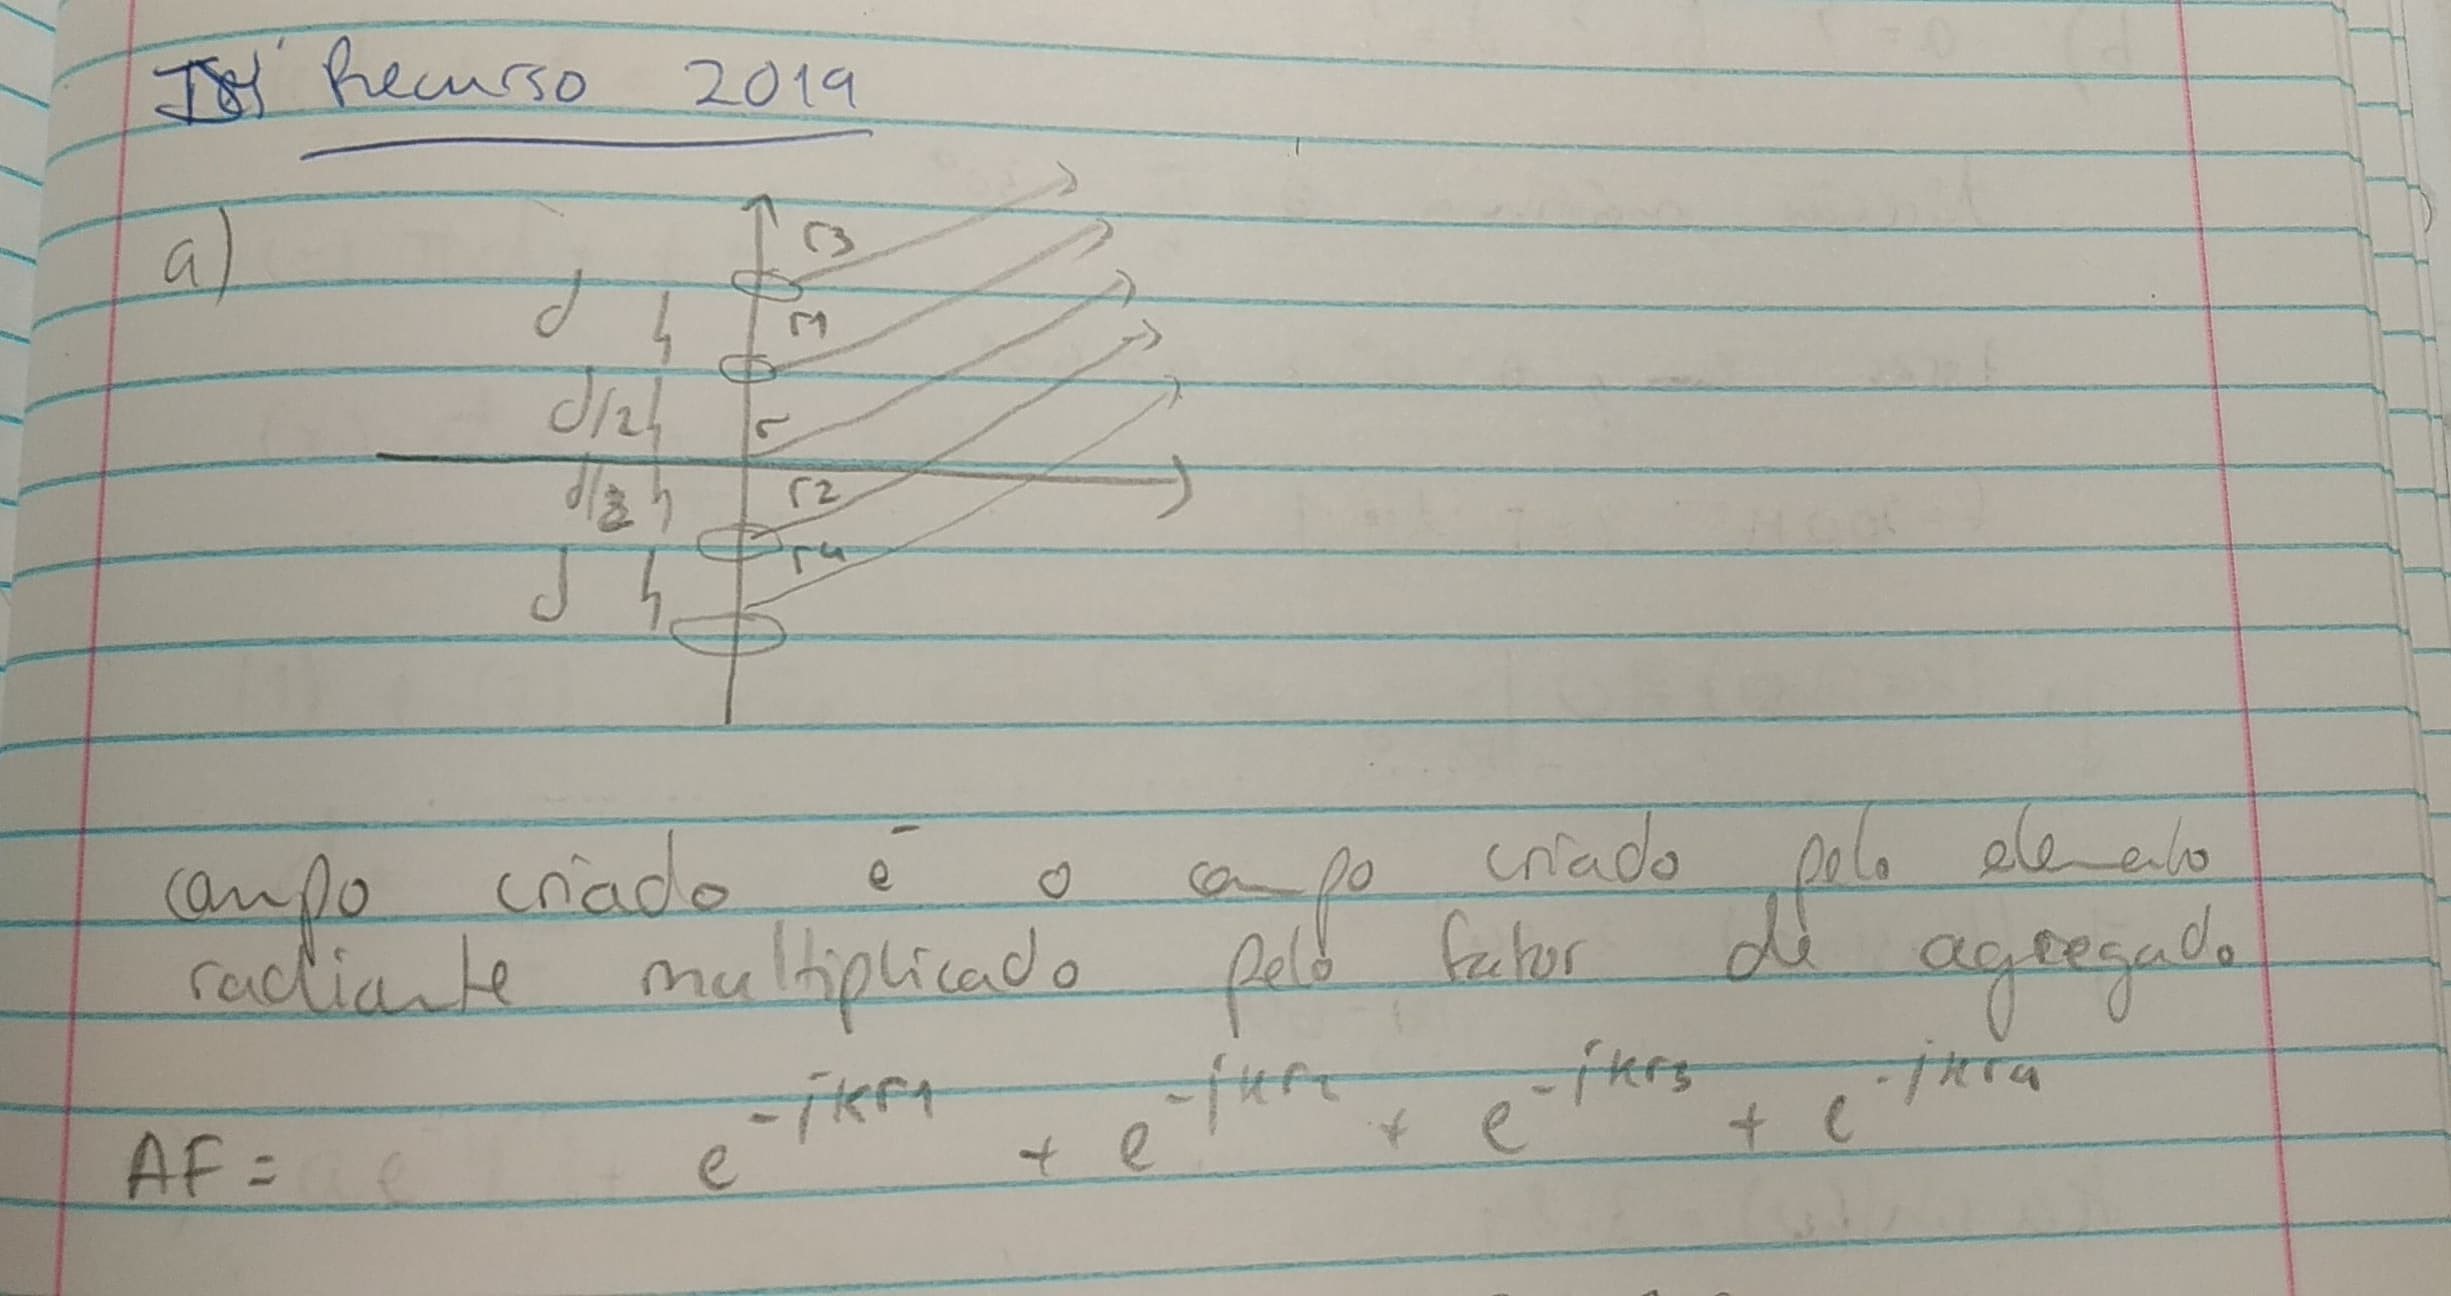 Recurso 2019
a)
r3
d
r1
d/2
r
d/2
r2
r4
d
campo criado é o campo criado pelo elemento
radiante multiplicado pelo fator de agregado
AF = e^-jkr1 + e^-jkr2 + e^-jkr3 + e^-jkr4